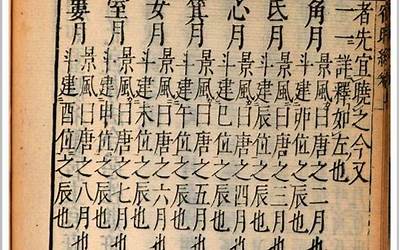 者先宜曉之今又
一一詳釋如左也
角月 景風曰唐之二月也
斗建卯位之辰也
氐月 景風曰唐之三月也
斗建辰位之辰也
心月 景風曰唐之四月也
斗建巳位之辰也
箕月 景風曰唐之五月也
斗建午位之辰也
女月 景風曰唐之六月也
斗建未位之辰也
室月 景風曰唐之七月也
斗建申位之辰也
婁月 景風曰唐之八月也
斗建酉位之辰也